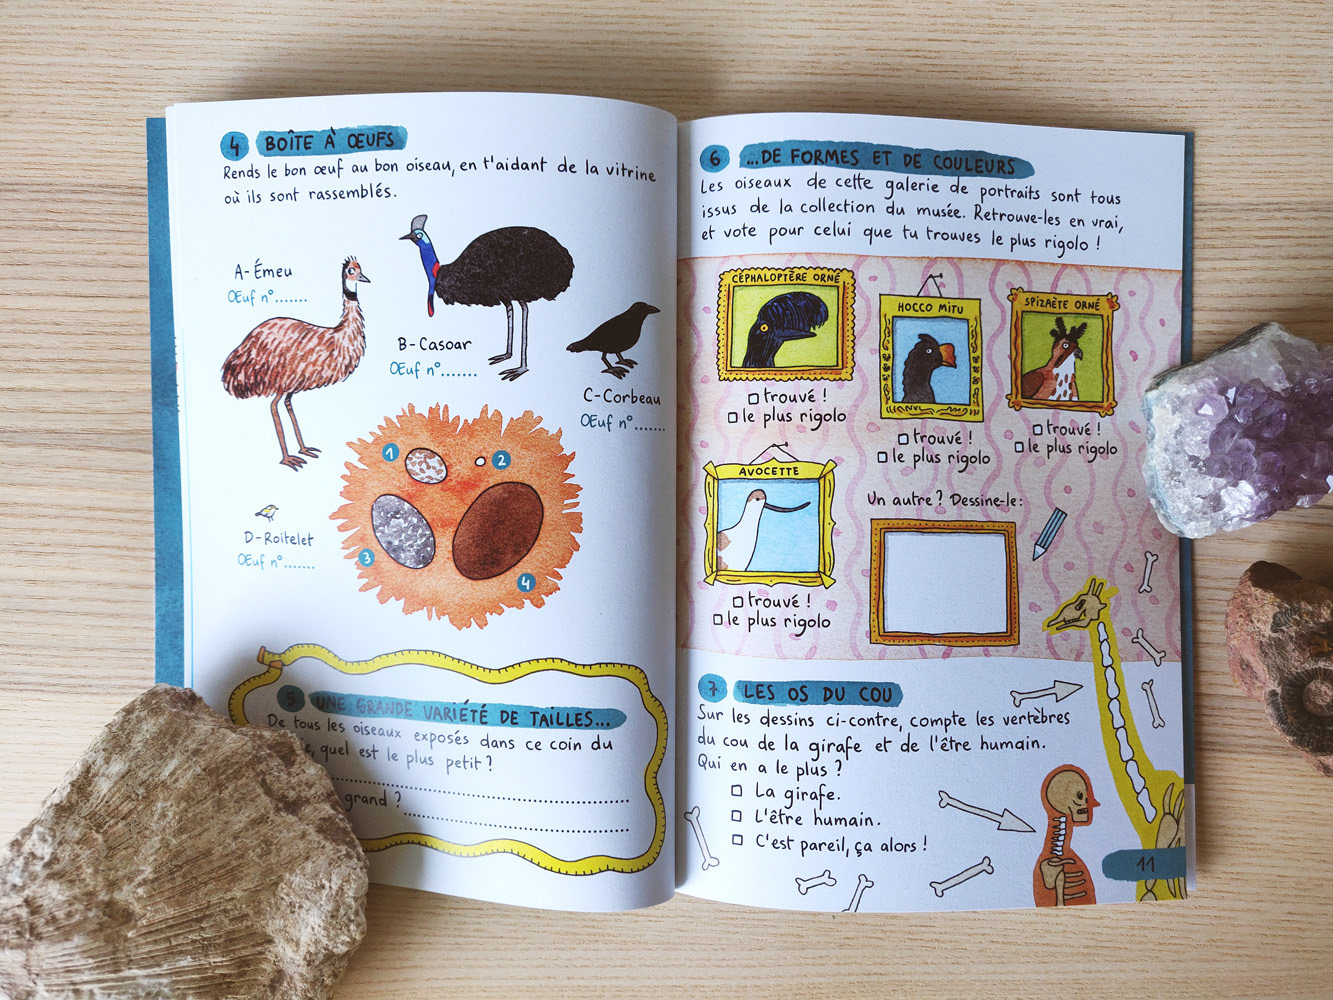 4 BOÎTE À ŒUFS
Rends le bon œuf au bon oiseau, en t'aidant de la vitrine
où ils sont rassemblés.
A-Émeu
Œuf n°.......
B-Casoar
Œuf n°.......
C-Corbeau
Œuf n°.......
D-Roitelet
Œuf n°.......
1
2
3
4
5 UNE GRANDE VARIÉTÉ DE TAILLES...
De tous les oiseaux exposés dans ce coin du
quel est le plus petit ?
grand ?
6 ...DE FORMES ET DE COULEURS
Les oiseaux de cette galerie de portraits sont tous
issus de la collection du musée. Retrouve-les en vrai,
et vote pour celui que tu trouves le plus rigolo !
CÉPHALOPTÈRE ORNÉ
trouvé !
le plus rigolo
HOCCO MITU
trouvé !
le plus rigolo
SPIZAÈTE ORNÉ
trouvé !
le plus rigolo
AVOCETTE
trouvé !
le plus rigolo
Un autre ? Dessine-le :
7 LES OS DU COU
Sur les dessins ci-contre, compte les vertèbres
du cou de la girafe et de l'être humain.
Qui en a le plus ?
La girafe.
L'être humain.
C'est pareil, ça alors !
11